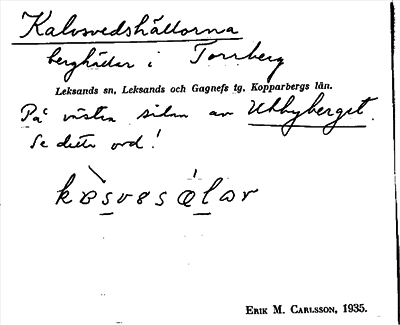 Kalvsvedshällorna
berghällar i Torrberg
Leksands sn, Leksands och Gagnefs tg, Kopparbergs län.
På västra sidan av Ubbyberget.
Se detta ord!
ERIK M. CARLSSON, 1935.